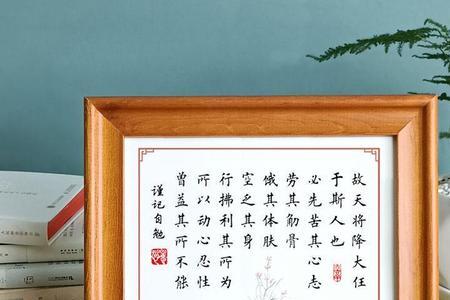 故天将降大任
于斯人也
必先苦其心志
劳其筋骨
饿其体肤
空乏其身
行拂乱其所为
所以动心忍性
曾益其所不能
谨记自勉